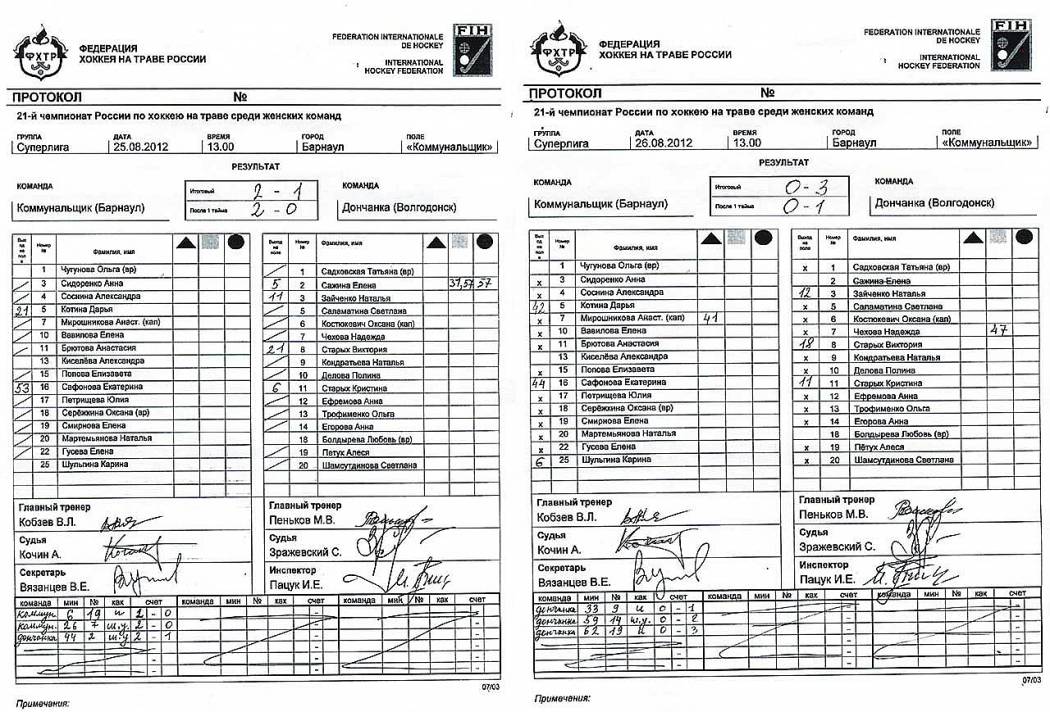 ФХТР
ФЕДЕРАЦИЯ
ХОККЕЯ НА ТРАВЕ РОССИИ
FEDERATION INTERNATIONALE
DE HOCKEY
INTERNATIONAL
HOCKEY FEDERATION
FIH
ПРОТОКОЛ №
21-й чемпионат России по хоккею на траве среди женских команд
ГРУППА ДАТА ВРЕМЯ ГОРОД ПОЛЕ
Суперлига 25.08.2012 13.00 Барнаул «Коммунальщик»
РЕЗУЛЬТАТ
КОМАНДА Итоговый 2 - 1 КОМАНДА
Коммунальщик (Барнаул) После 1 тайма 2 - 0 Дончанка (Волгодонск)
Выход на поле Номер № Фамилия, имя
1 Чугунова Ольга (вр)
3 Сидоренко Анна
4 Соснина Александра
21 5 Котина Дарья
7 Мирошникова Анаст. (кап)
10 Вавилова Елена
11 Брютова Анастасия
13 Киселёва Александра
15 Попова Елизавета
53 16 Сафонова Екатерина
17 Петрищева Юлия
18 Серёжкина Оксана (вр)
19 Смирнова Елена
20 Мартемьянова Наталья
22 Гусева Елена
25 Шульгина Карина
Выход на поле Номер № Фамилия, имя
1 Садковская Татьяна (вр)
5 2 Сажина Елена 31,57 57
11 3 Зайченко Наталья
5 Саламатина Светлана
6 Костюкевич Оксана (кап)
7 Чехова Надежда
21 8 Старых Виктория
9 Кондратьева Наталья
10 Делова Полина
6 11 Старых Кристина
12 Ефремова Анна
13 Трофименко Ольга
14 Егорова Анна
18 Болдырева Любовь (вр)
19 Петух Алеся
20 Шамсутдинова Светлана
Главный тренер Главный тренер
Кобзев В.Л. Пеньков М.В.
Судья Судья
Кочин А. Зражевский С.
Секретарь Инспектор
Вязанцев В.Е. Пацук И.Е.
команда мин № как счет команда мин № как счет команда мин № как счет
коммун. 6 19 и 2 - 0
коммун. 26 7 ш.у. 2 - 0
дончанка 44 2 ш.у. 2 - 1
07/03
Примечания:
ФХТР
ФЕДЕРАЦИЯ
ХОККЕЯ НА ТРАВЕ РОССИИ
FEDERATION INTERNATIONALE
DE HOCKEY
INTERNATIONAL
HOCKEY FEDERATION
FIH
ПРОТОКОЛ №
21-й чемпионат России по хоккею на траве среди женских команд
ГРУППА ДАТА ВРЕМЯ ГОРОД ПОЛЕ
Суперлига 26.08.2012 13.00 Барнаул «Коммунальщик»
РЕЗУЛЬТАТ
КОМАНДА Итоговый 0 - 3 КОМАНДА
Коммунальщик (Барнаул) После 1 тайма 0 - 1 Дончанка (Волгодонск)
Выход на поле Номер № Фамилия, имя
1 Чугунова Ольга (вр)
x 3 Сидоренко Анна
x 4 Соснина Александра
42 5 Котина Дарья
x 7 Мирошникова Анаст. (кап) 41
x 10 Вавилова Елена
x 11 Брютова Анастасия
13 Киселёва Александра
x 15 Попова Елизавета
44 16 Сафонова Екатерина
x 17 Петрищева Юлия
x 18 Серёжкина Оксана (вр)
x 19 Смирнова Елена
x 20 Мартемьянова Наталья
x 22 Гусева Елена
6 25 Шульгина Карина
Выход на поле Номер № Фамилия, имя
x 1 Садковская Татьяна (вр)
2 Сажина Елена
12 3 Зайченко Наталья
x 5 Саламатина Светлана
x 6 Костюкевич Оксана (кап)
x 7 Чехова Надежда 47
18 8 Старых Виктория
x 9 Кондратьева Наталья
x 10 Делова Полина
11 11 Старых Кристина
x 12 Ефремова Анна
x 13 Трофименко Ольга
x 14 Егорова Анна
18 Болдырева Любовь (вр)
x 19 Пётух Алеся
x 20 Шамсутдинова Светлана
Главный тренер Главный тренер
Кобзев В.Л. Пеньков М.В.
Судья Судья
Кочин А. Зражевский С.
Секретарь Инспектор
Вязанцев В.Е. Пацук И.Е.
команда мин № как счет команда мин № как счет команда мин № как счет
дончанка 33 9 и 0 - 1
дончанка 59 14 ш.у. 0 - 2
дончанка 62 19 и 0 - 3
07/03
Примечания: